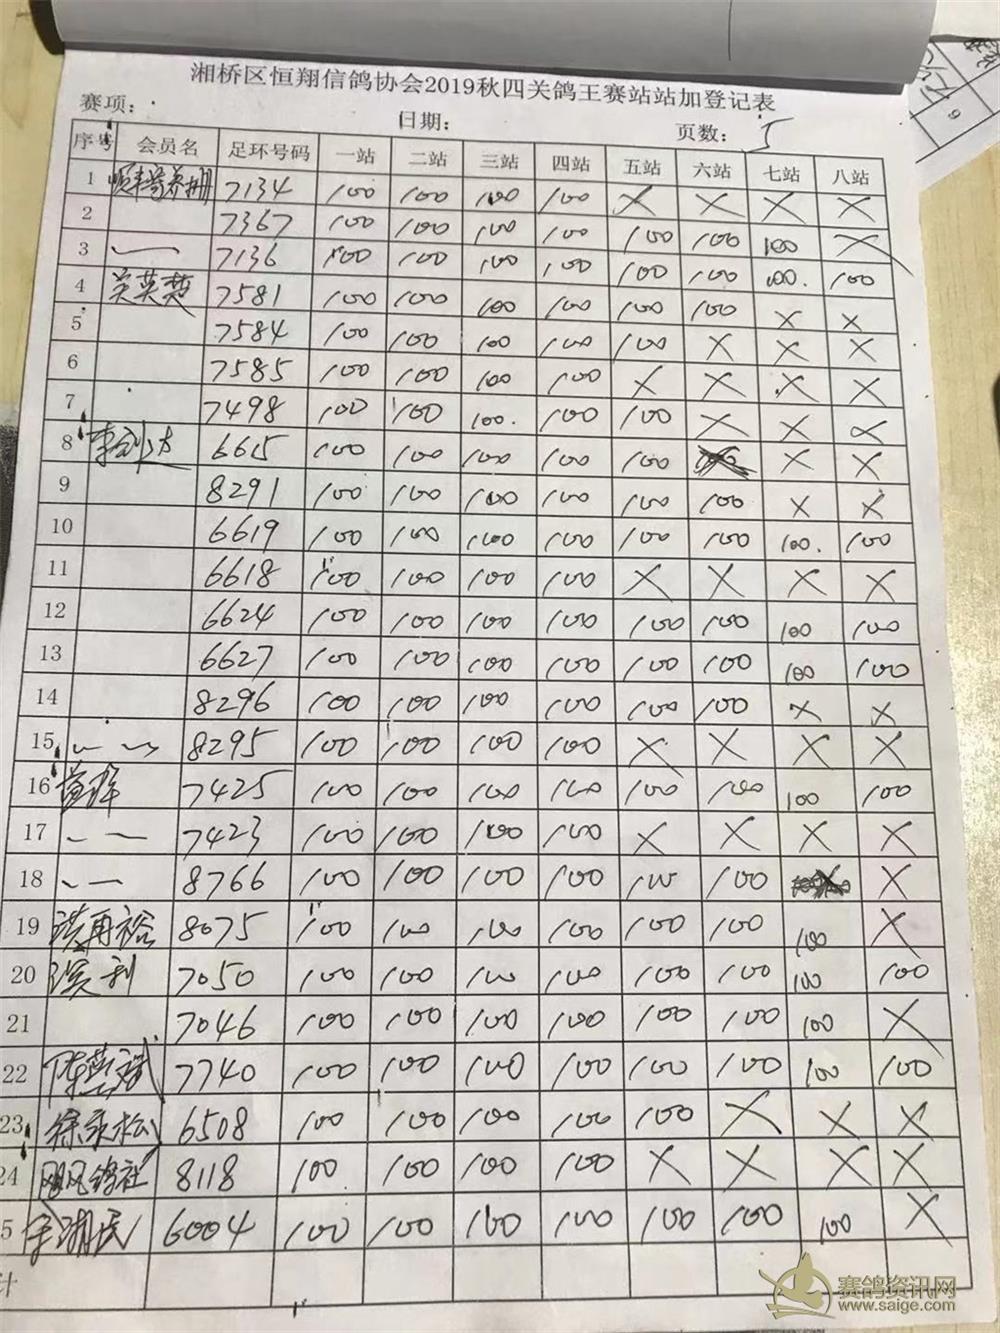 湘桥区恒翔信鸽协会2019秋四关鸽王赛站站加登记表
赛项: 日期: 页数: 5
序号 会员名 足环号码 一站 二站 三站 四站 五站 六站 七站 八站
1 7134 100 100 100 100 × × × ×
2 7367 100 100 100 100 100 100 100 ×
3 7136 100 100 100 100 100 100 100. 100
4 吴英楚 7581 100 100 100 100 100 100 × ×
5 7584 100 100 100 100 100 × × ×
6 7585 100 100 100 100 × × × ×
7 7498 100 100 100. 100 100 × × ×
8 李剑达 6615 100 100 100 100 100 × ×
9 8291 100 100 100 100 100 100 × ×
10 6619 100 100 100 100 100 100 100. 100
11 6618 100 100 100 100 × × × ×
12 6624 100 100 100 100 100 100 100 100
13 6627 100 100 100 100 100 100 100 100
14 8296 100 100 100 100 100 100 × ×
15 8295 100 100 100 100 × × × ×
16 7425 100 100 100 100 100 100 100 100
17 7423 100 100 100 100 × × × ×
18 8766 100 100 100 100 100 100 ×
19 洪再裕 8075 100 100 100 100 100 100 100 ×
20 利 7050 100 100 100 100 100 100 100 100
21 7046 100 100 100 100 100 100 100 ×
22 陈 斌 7740 100 100 100 100 100 100 100 100
23 徐永松 6508 100 100 100 100 100 × × ×
24 飓风鸽社 8118 100 100 100 100 × × × ×
5 李湖民 6004 100 100 100 100 100 100 100 ×
计
9
赛鸽资讯网
www.saige.com